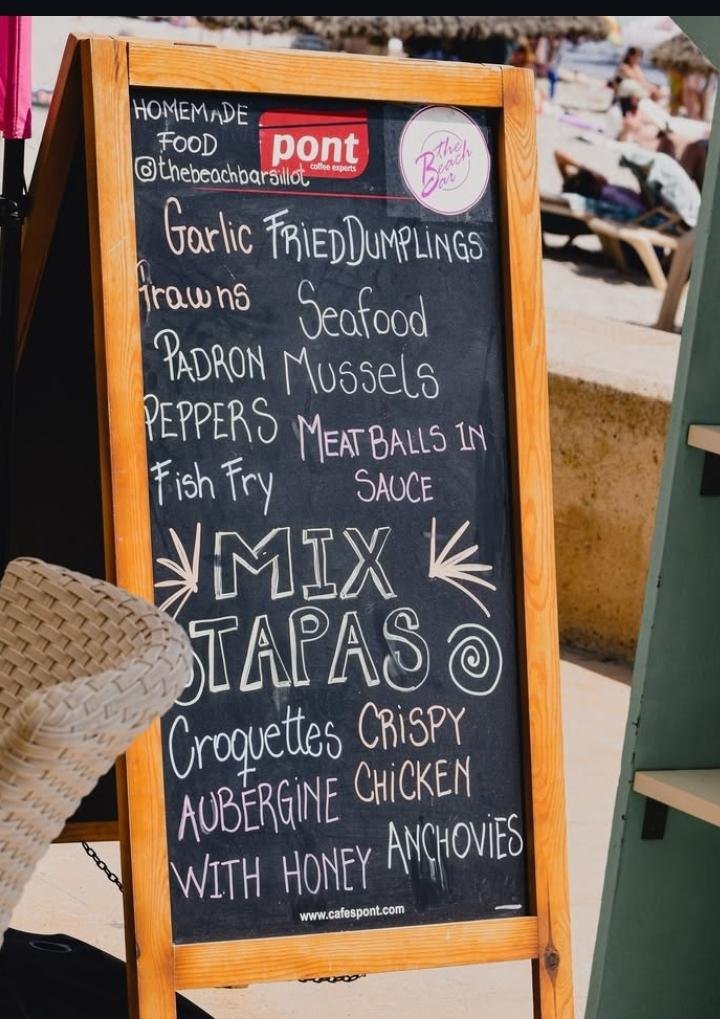 HOMEMADE
FOOD
thebeachbarsillot
pont
coffee experts
the
Beach
Bar
Garlic
Prawns
FRIED DUMPLINGS
Seafood
Mussels
PADRON
PEPPERS
MEATBALLS IN
SAUCE
Fish Fry
MIX
TAPAS
Croquettes
CRISPY
CHICKEN
AUBERGINE
WITH HONEY
ANCHOVIES
www.cafespont.com